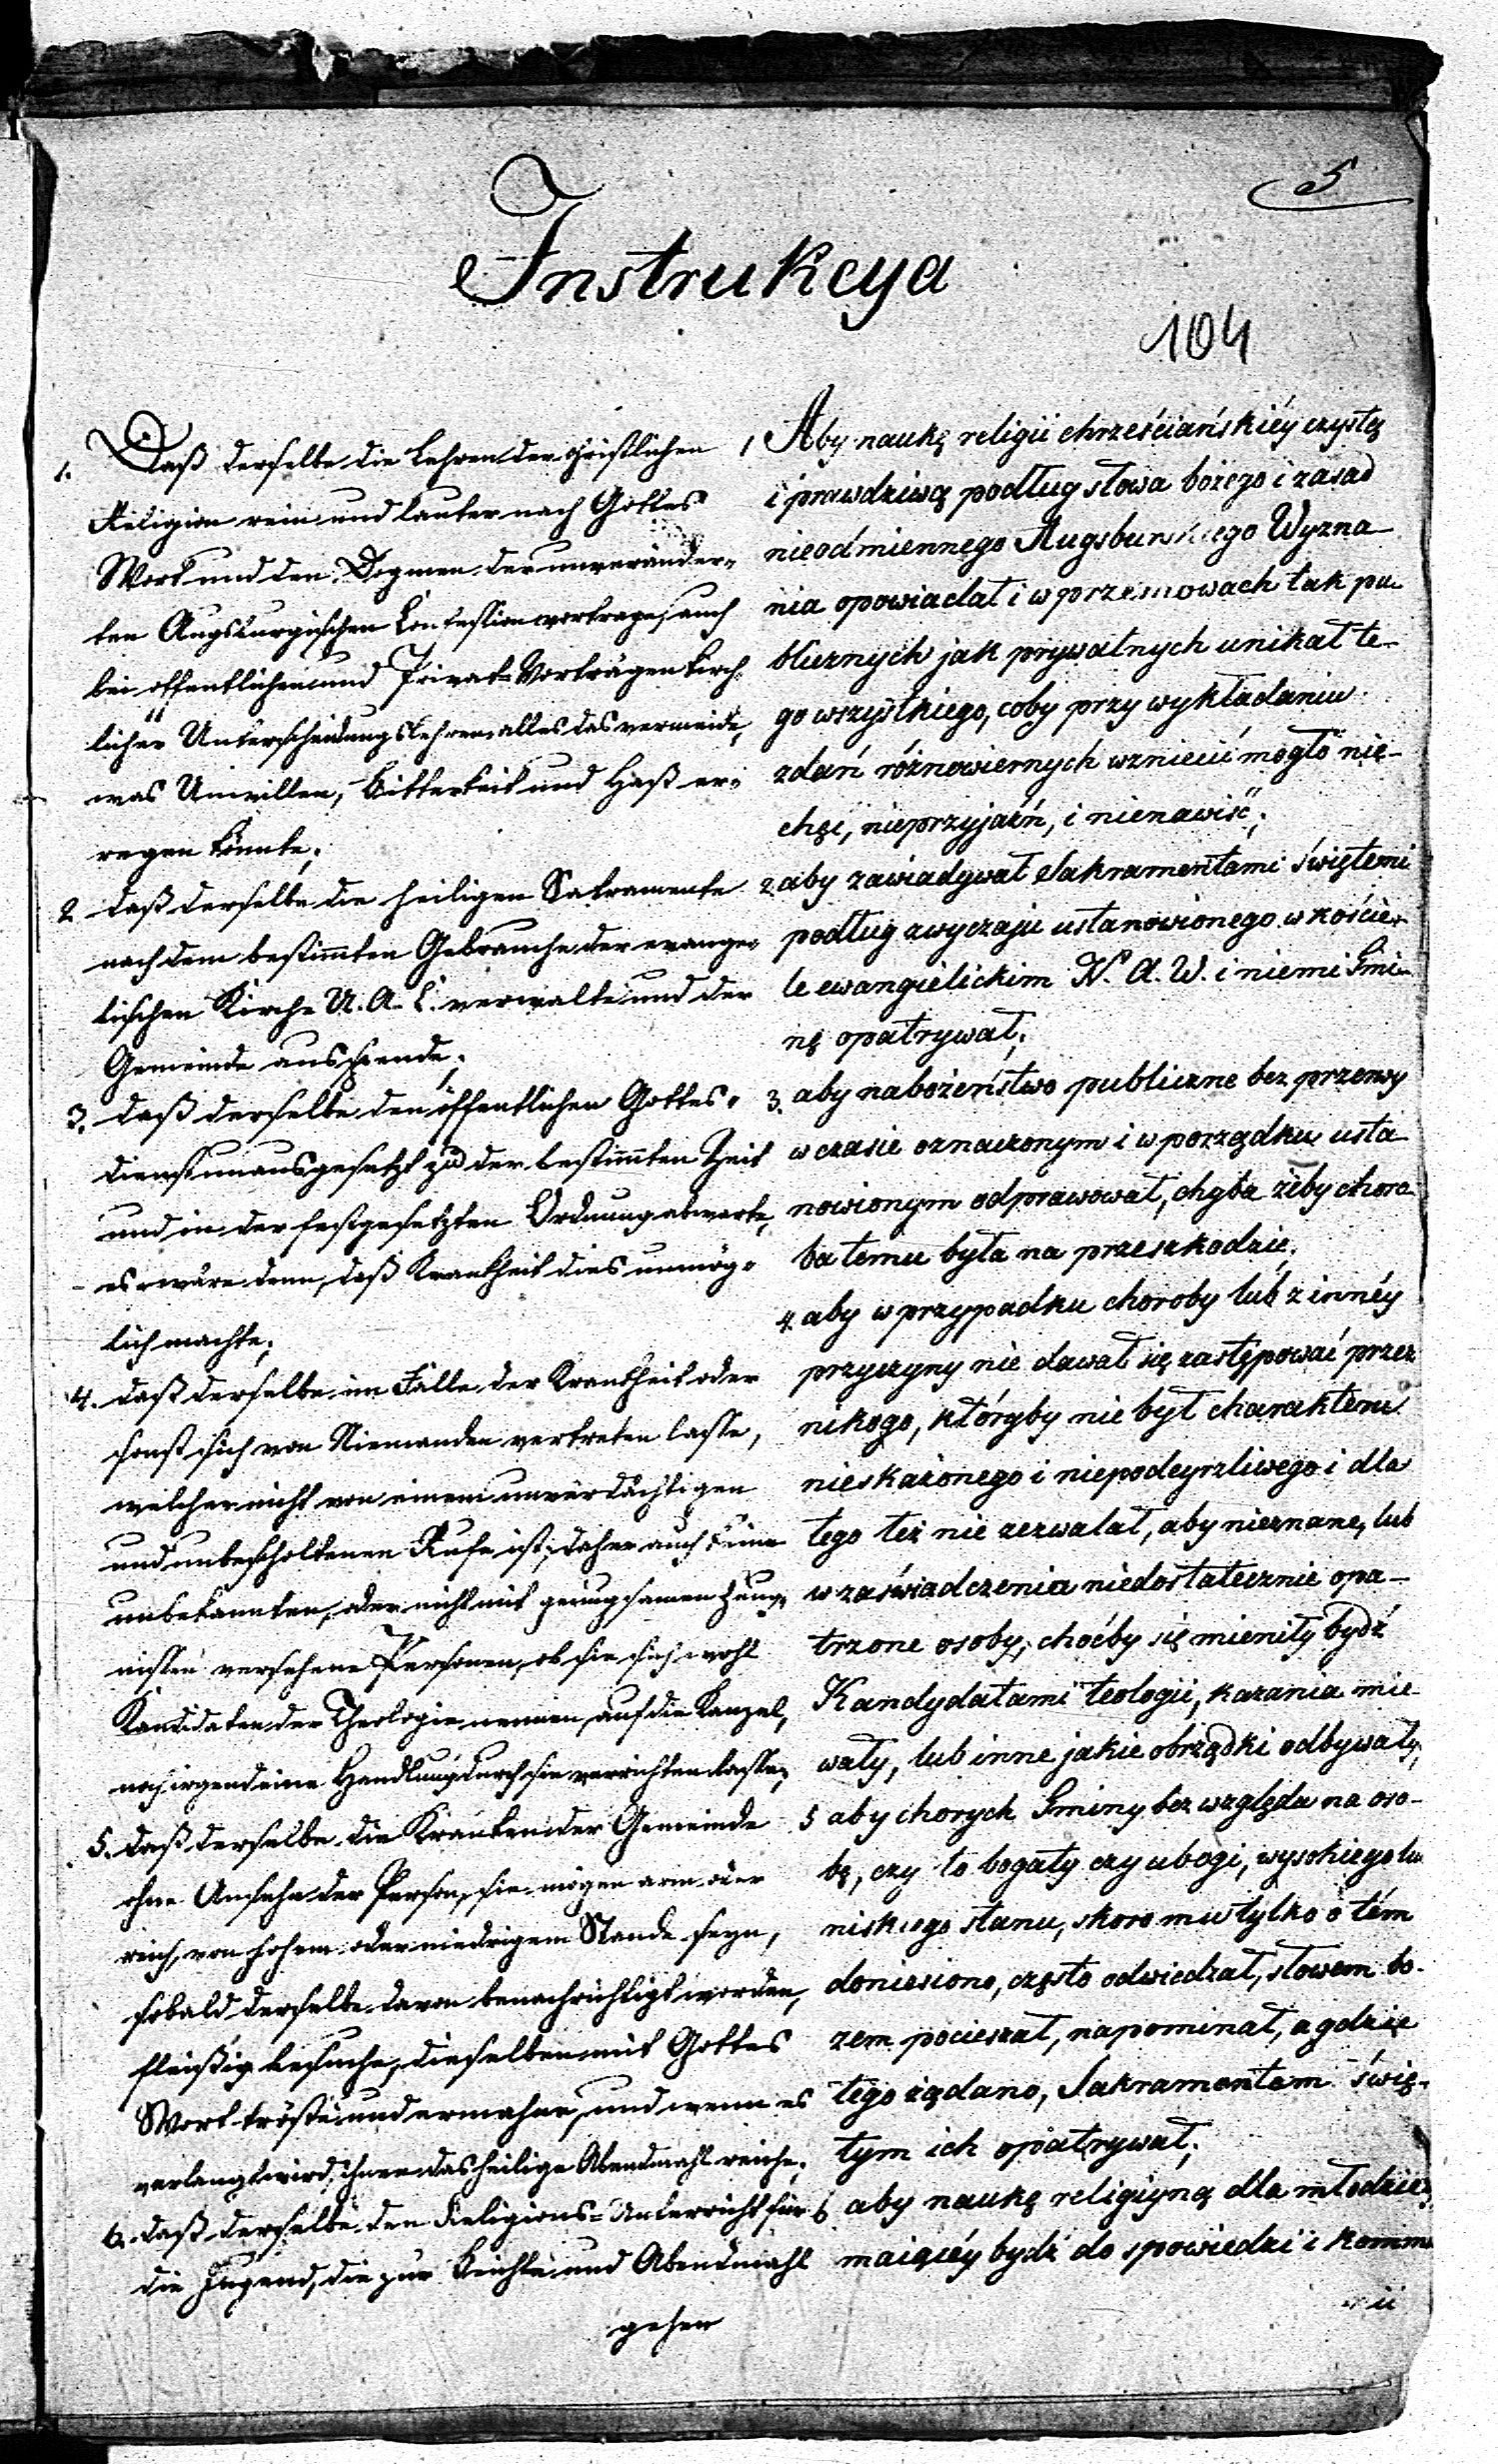 5
Instrukcya
104
1. Daß derselbe die Lehren der christlichen
Religion rein und lauter nach Gottes
Wort und den Dogmen der unveränder-
ten Augsburgischen Confession vortrage, auch
bei öffentlichen und Privat-Vorträgen kirch-
licher Unterscheidungslehren alles das vermeide,
was Unwillen, Bitterkeit und Haß er-
regen könnte;
2 daß derselbe die heiligen Sakramente
nach dem bestimten Gebrauche der evange-
lischen Kirche U. A. C. verwalte und der
Gemeinde ausspende;
3. daß derselbe den öffentlichen Gottes-
dienst unausgesetzt zu der bestimten Zeit
und in der festgesetzten Ordnung abwarte,
es wäre denn, daß Krankheit dies unmög-
lich machte;
4. daß derselbe im Falle der Krankheit oder
sonst sich von Niemanden vertreten lasse,
welcher nicht von einem unverdächtigen
und unbescholtenen Rufe ist, daher auch keine
unbekannten, oder nicht mit genugsamen Zeug-
nissen versehene Personen, ob sie sich wohl
Kandidaten der Theologie nennen, auf die Kanzel,
noch irgend eine Handlung durch sie verrichten lasse;
5. daß derselbe die Kranken der Gemeinde
ohne Ansehn der Person, sie mögen arm oder
reich, von hohem oder niedrigem Stande seyn,
sobald derselbe davon benachrichtigt worden,
fleißig besuche, dieselben mit Gottes
Wort tröste und ermahne, und wenn es
verlangt wird, ihnen das heilige Abendmahl reiche;
6. daß derselbe den Religions-Unterricht für
die Jugend, die zur Beichte und Abendmahl
gehen
1 Aby naukę religii chrześciańskiéy czystą
i prawdziwą podług słowa bożego i zasad
nieodmiennego Augsburskiego Wyzna-
nia opowiadał i w przemowach tak pu-
blicznych jak prywatnych unikał te-
go wszystkiego, coby przy wykładaniu
zdań różnowiernych wzniecić mogło nie-
chęć, nieprzyjaźń, i nienawiść;
2 aby zawiadywał Sakramentami świętemi
podług zwyczaju ustanowionego w koście-
le ewangielickim N. A. W. i niemi Gmi-
nę opatrywał;
3. aby nabożeństwo publiczne bez przerwy
w czasie oznaczonym i w porządku usta-
nowionym odprawował, chyba żeby choro-
ba temu była na przeszkodzie;
4. aby w przypadku choroby lub z innéy
przyczyny nie dawał się zastępować przez
nikogo, któryby nie był charakteru
nieskażonego i niepodeyrzliwego i dla
tego też nie zezwalał, aby nieznane, lub
w zaświadczenia niedostatecznie opa-
trzone osoby, choćby się mieniły bydź
Kandydatami teologii, kazania mie-
wały, lub inne jakie obrządki odbywały,
5 aby chorych Gminy bez względu na oso-
bę, czy to bogaty czy ubogi, wysokiego lu
niskiego stanu, skoro mu tylko o tém
doniesiono, często odwiedzał, słowem bo-
żem pocieszał, napominał, a gdzie
tego żądano, Sakramentem świę-
tym ich opatrywał;
6 aby naukę religiyną dla młodzieży
maiącéy bydź do spowiedzi i kommu
nii